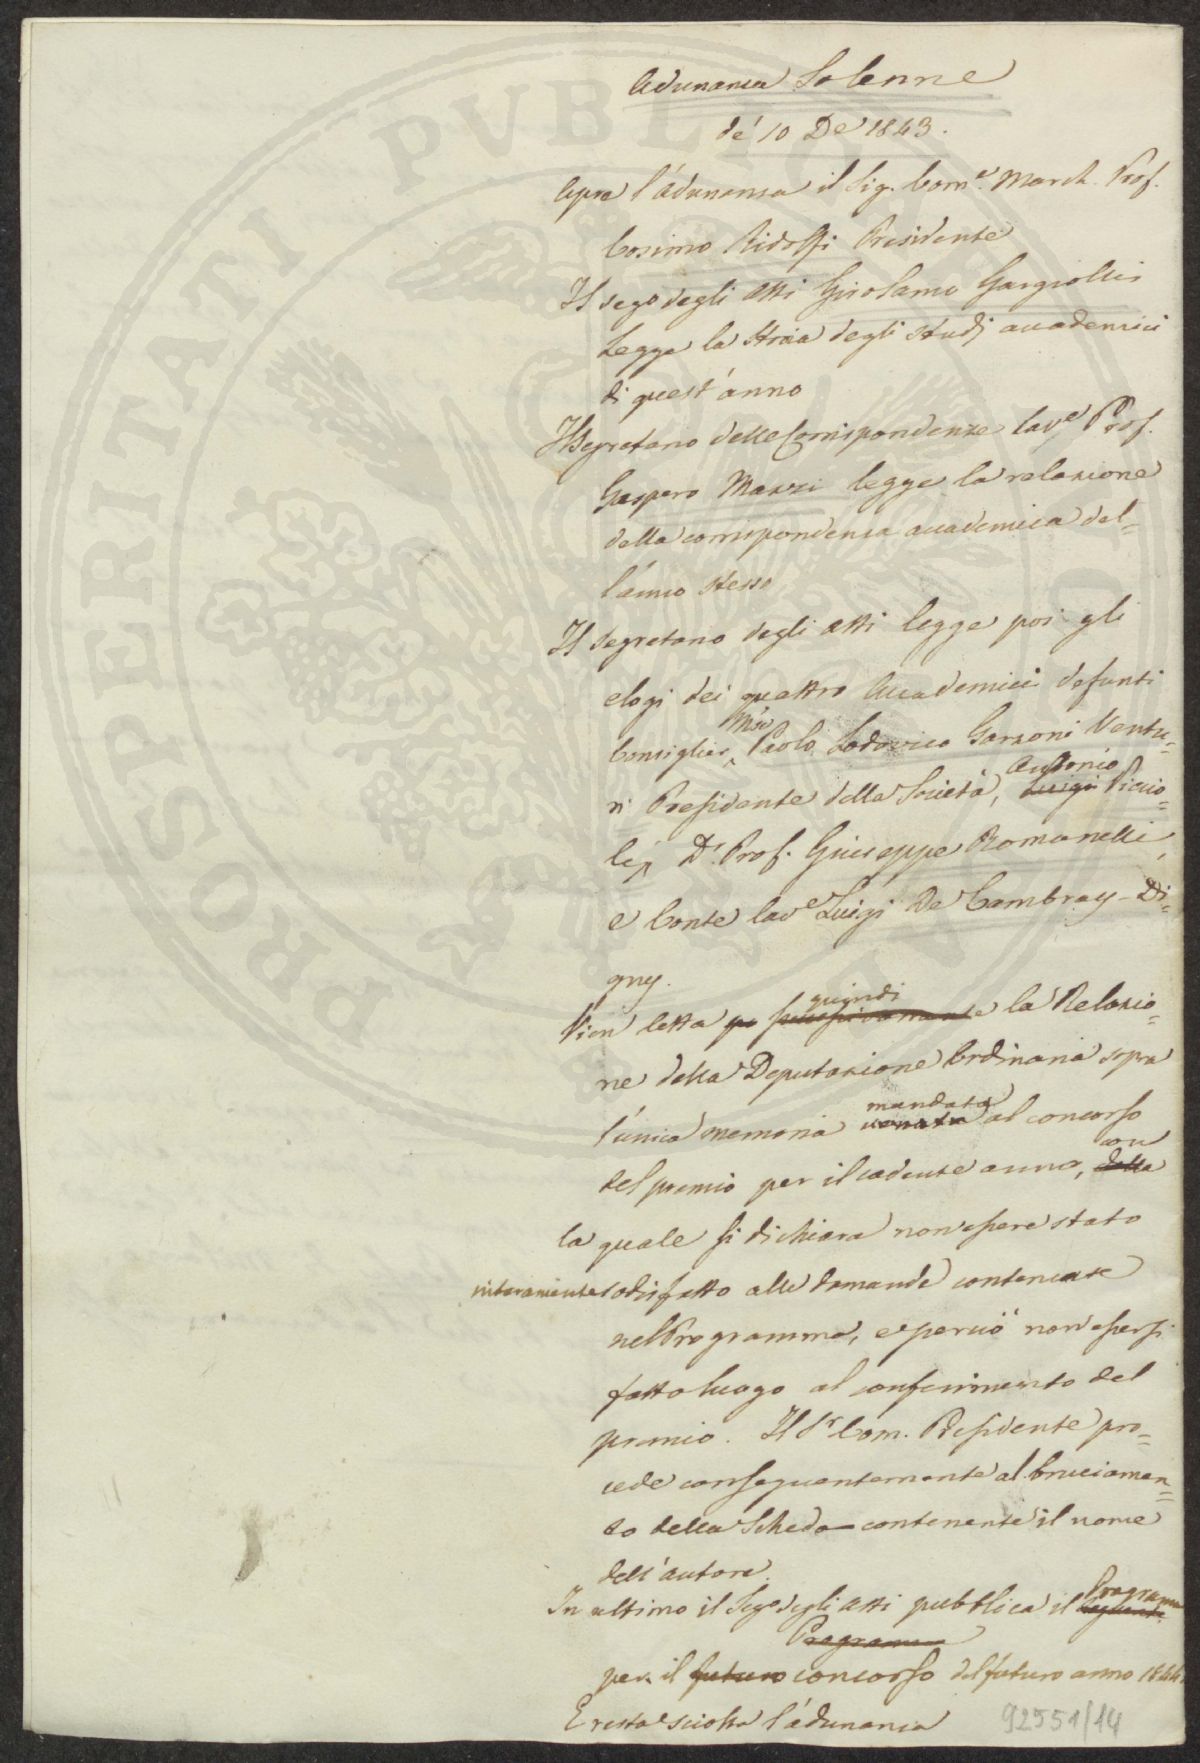 Adunanza Solenne
de' 10 De 1843.
Apre l'Adunanza il Sig. Come. March. Prof.
Cosimo Ridolfi Presidente
Il sego degli Atti Girolamo Gargiolli
Legge la Storia degli studj accademici
di quest'anno
Il Segretario delle Corrispondenze Cave Prof.
Gaspero Mazzi legge la relazione
della corrispondenza accademica del=
l'anno stesso
Il segretario degli Atti legge poi gli
elogi dei quattro Accademici defunti
Consiglier Paolo Lodovico Garzoni Ventu=
ri Presidente della Società, Luigi Antonio Piccio=
li, Dr Prof. Giuseppe Romanelli,
e Conte Cave Luigi De Cambray-Di=
gny.
Vien letta quindi la Relazio=
ne della Deputazione Ordinaria sopra
l'unica memoria venuta mandata al concorso
del premio per il cadente anno, della con
la quale si dichiara non essere stato
interamente sodisfatto alle domande contenute
nel Programma, e perciò non essersi
fatto luogo al conferimento del
premio. Il Sr Com. Presidente pro=
cede conseguentemente al bruciamen=
to della Scheda contenente il nome
dell'autore.
In ultimo il Sego degli Atti pubblica il seguente Programma
Programma
per il futuro concorso del futuro anno 1844.
E resta sciolta l'adunanza
92551/14
PROSPERITATI PVBLICAE AVGENDAE